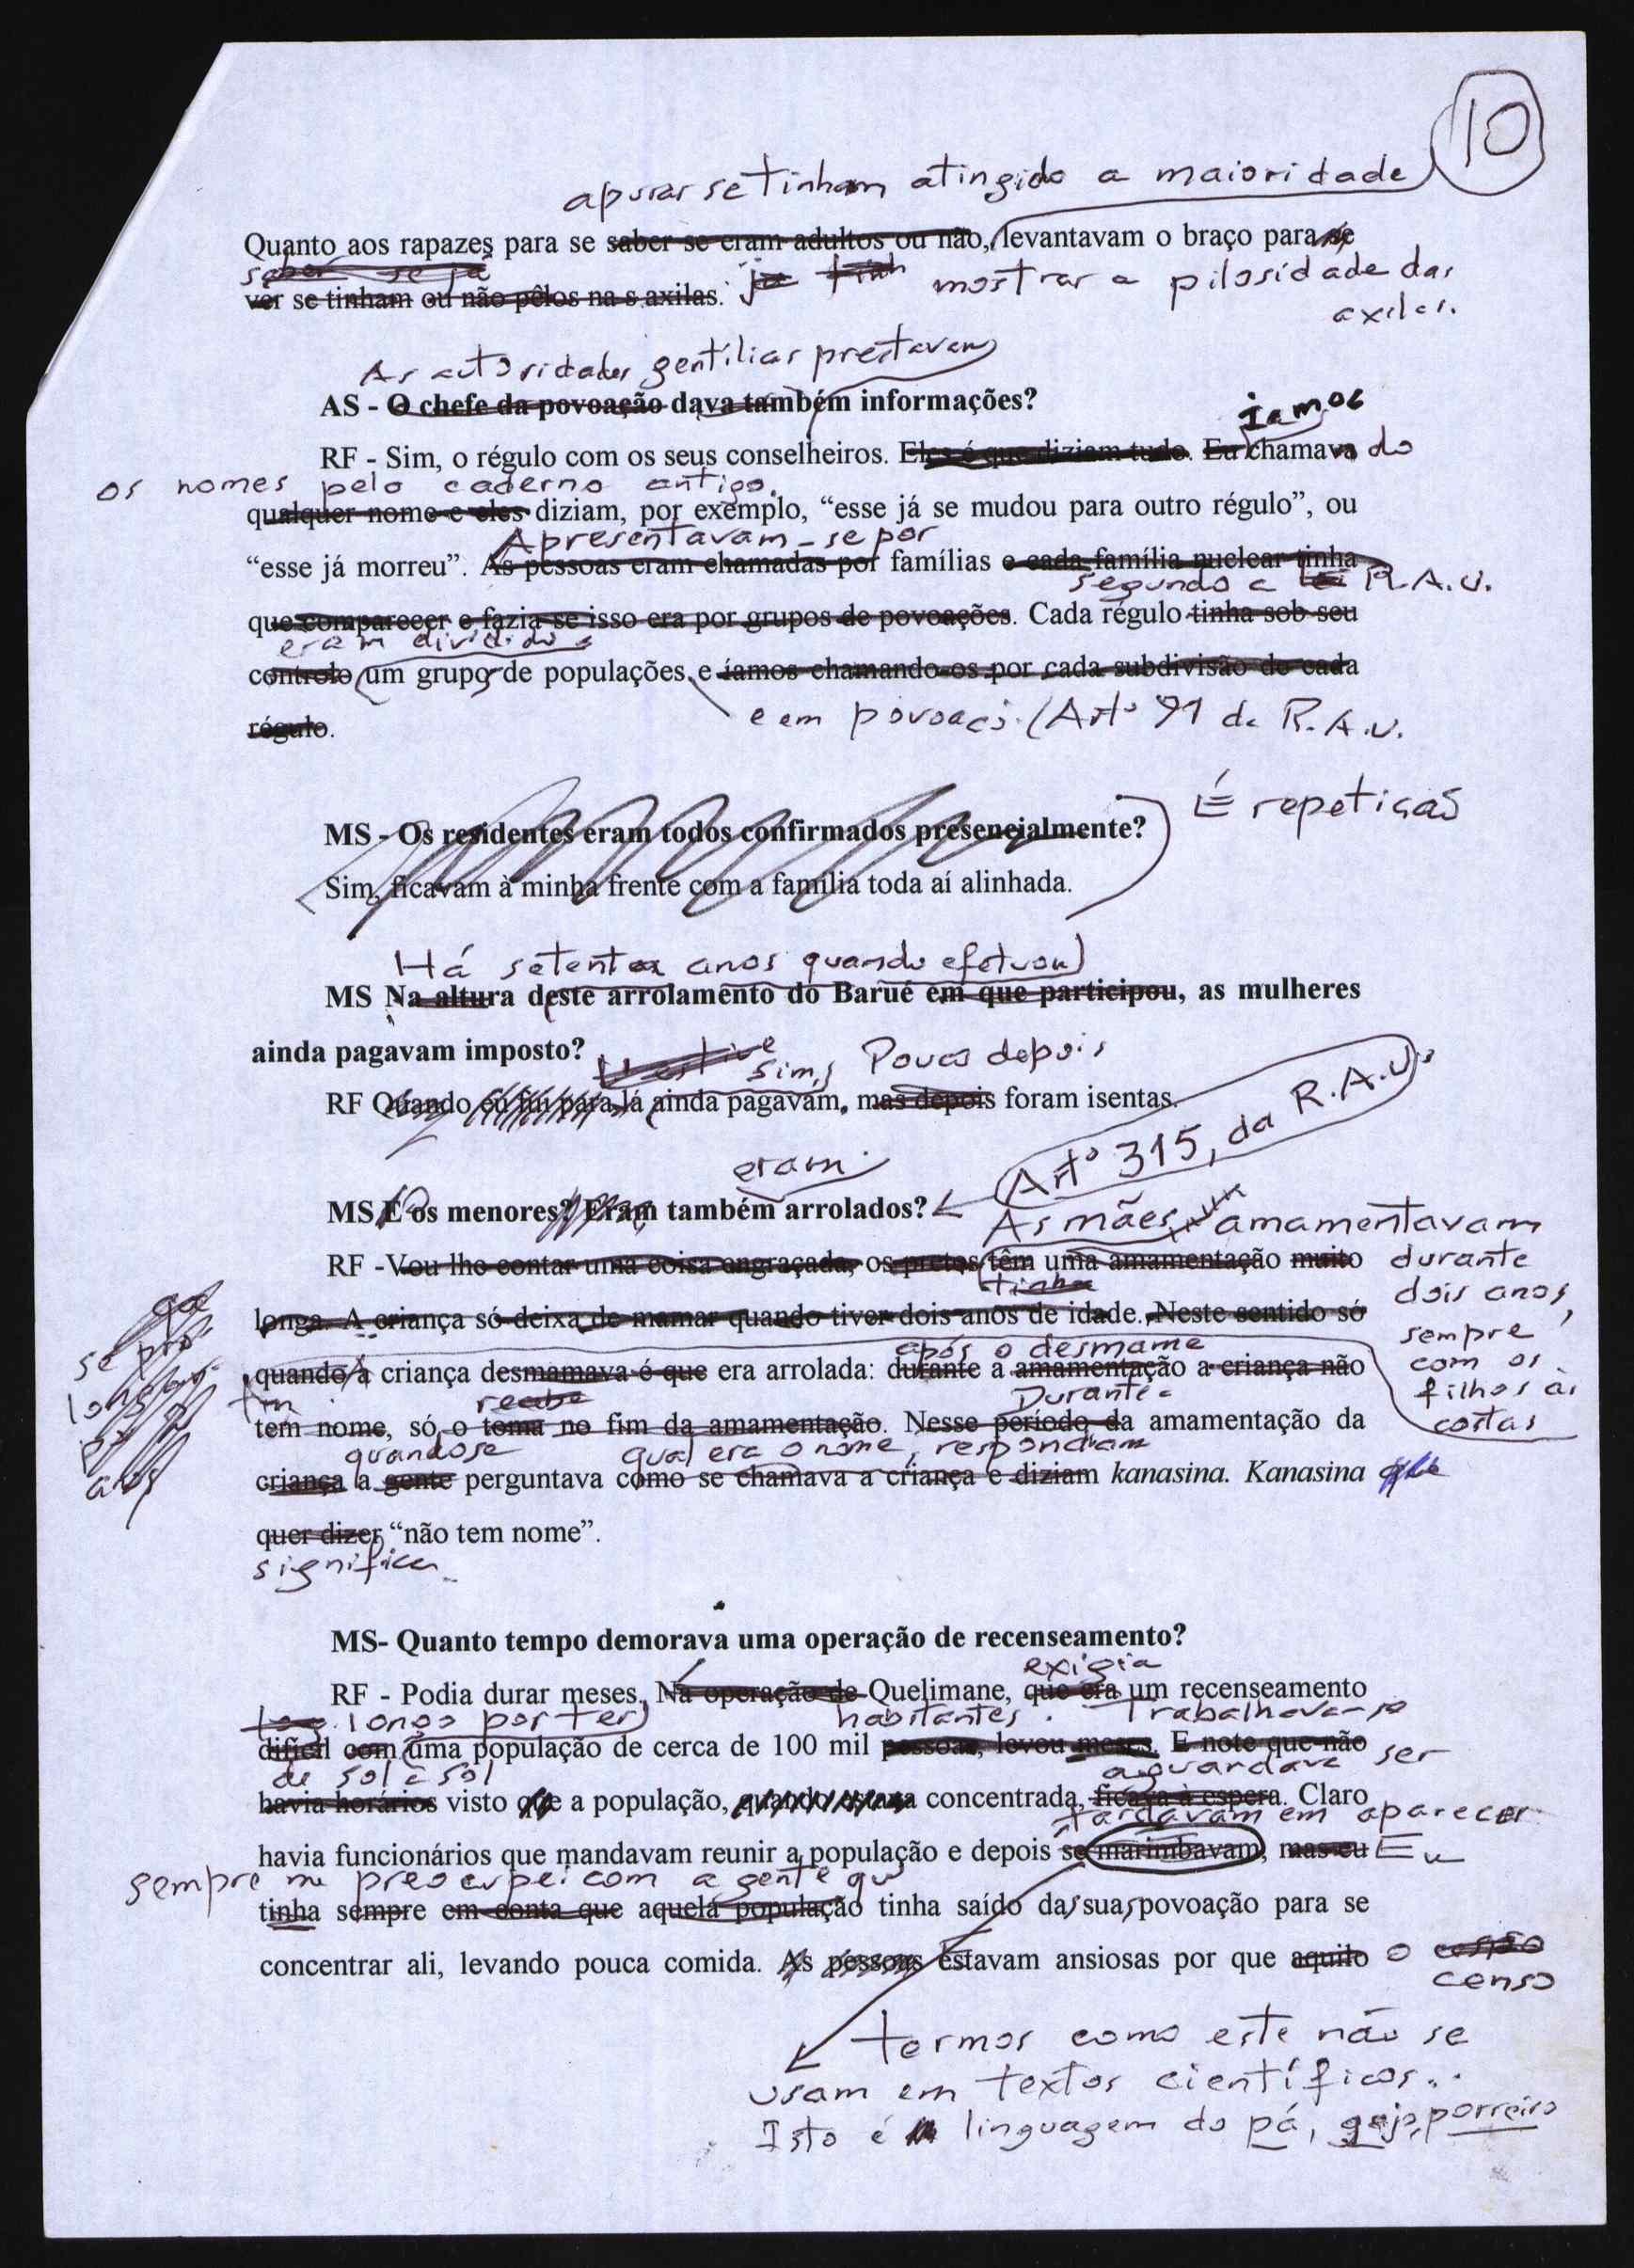 10
apurar se tinham atingido a maioridade
Quanto aos rapazes para se saber se eram adultos ou não, levantavam o braço para se
saber se já
já tinh mostrar a pilosidade das
ver se tinham ou não pêlos na s axilas.
axilas.
As autoridades gentílias prestavam
AS - O chefe da povoação dava também informações?
iamos
RF - Sim, o régulo com os seus conselheiros. Eles é que diziam tudo. Eu chamava do
os nomes pelo caderno antigo.
qualquer nome e eles diziam, por exemplo, “esse já se mudou para outro régulo”, ou
Apresentavam-se por
“esse já morreu”. As pessoas eram chamadas por famílias e cada família nuclear tinha
segundo a R.A.U.
que comparecer e fazia-se isso era por grupos de povoações. Cada régulo tinha sob seu
eram divididos
controlo um grupo de populações e íamos chamando-os por cada subdivisão de cada
e em povoaçõ. (Artº 91 da R.A.U.
régulo.
É repetição
MS - Os residentes eram todos confirmados presencialmente?
Sim, ficavam à minha frente com a família toda aí alinhada.
Há setenta anos quando efetuou
MS Na altura deste arrolamento do Barué em que participou, as mulheres
ainda pagavam imposto?
Sim, Pouco depois
RF Quando eu fui para lá ainda pagavam, mas depois foram isentas.
Artº 315, da R.A.U.
eram
MS E os menores? Eram também arrolados?
As mães amamentavam
RF -Vou lhe contar uma coisa engraçada, os pretos têm uma amamentação muito
durante
tinha
dois anos,
longa. A criança só deixa de mamar quando tiver dois anos de idade. Neste sentido só
sempre
após o desmame
com os
quando a criança desmamava é que era arrolada: durante a amamentação a criança não
filhos às
costas
recebe
Durante a
tem nome, só o toma no fim da amamentação. Nesse período da amamentação da
quando se qual era o nome, respondiam
criança a gente perguntava como se chamava a criança e diziam kanasina. Kanasina que
quer dizer “não tem nome”.
significa
MS- Quanto tempo demorava uma operação de recenseamento?
exigia
RF - Podia durar meses. Na operação de Quelimane, que era um recenseamento
longo por ter habitantes. Trabalhava-se
difícil com uma população de cerca de 100 mil pessoas, levou meses. E note que não
de sol a sol aguardava ser
havia horários visto que a população, quando estava concentrada, ficava à espera. Claro
tardavam em aparecer
havia funcionários que mandavam reunir a população e depois se marimbavam, mas eu Eu
sempre me preocupei com a gente que
tinha sempre em conta que aquela população tinha saído da sua povoação para se
concentrar ali, levando pouca comida. As pessoas estavam ansiosas por que aquilo o
censo
termos como este não se
usam em textos científicos..
Isto é linguagem do pá, gajo, porreiro